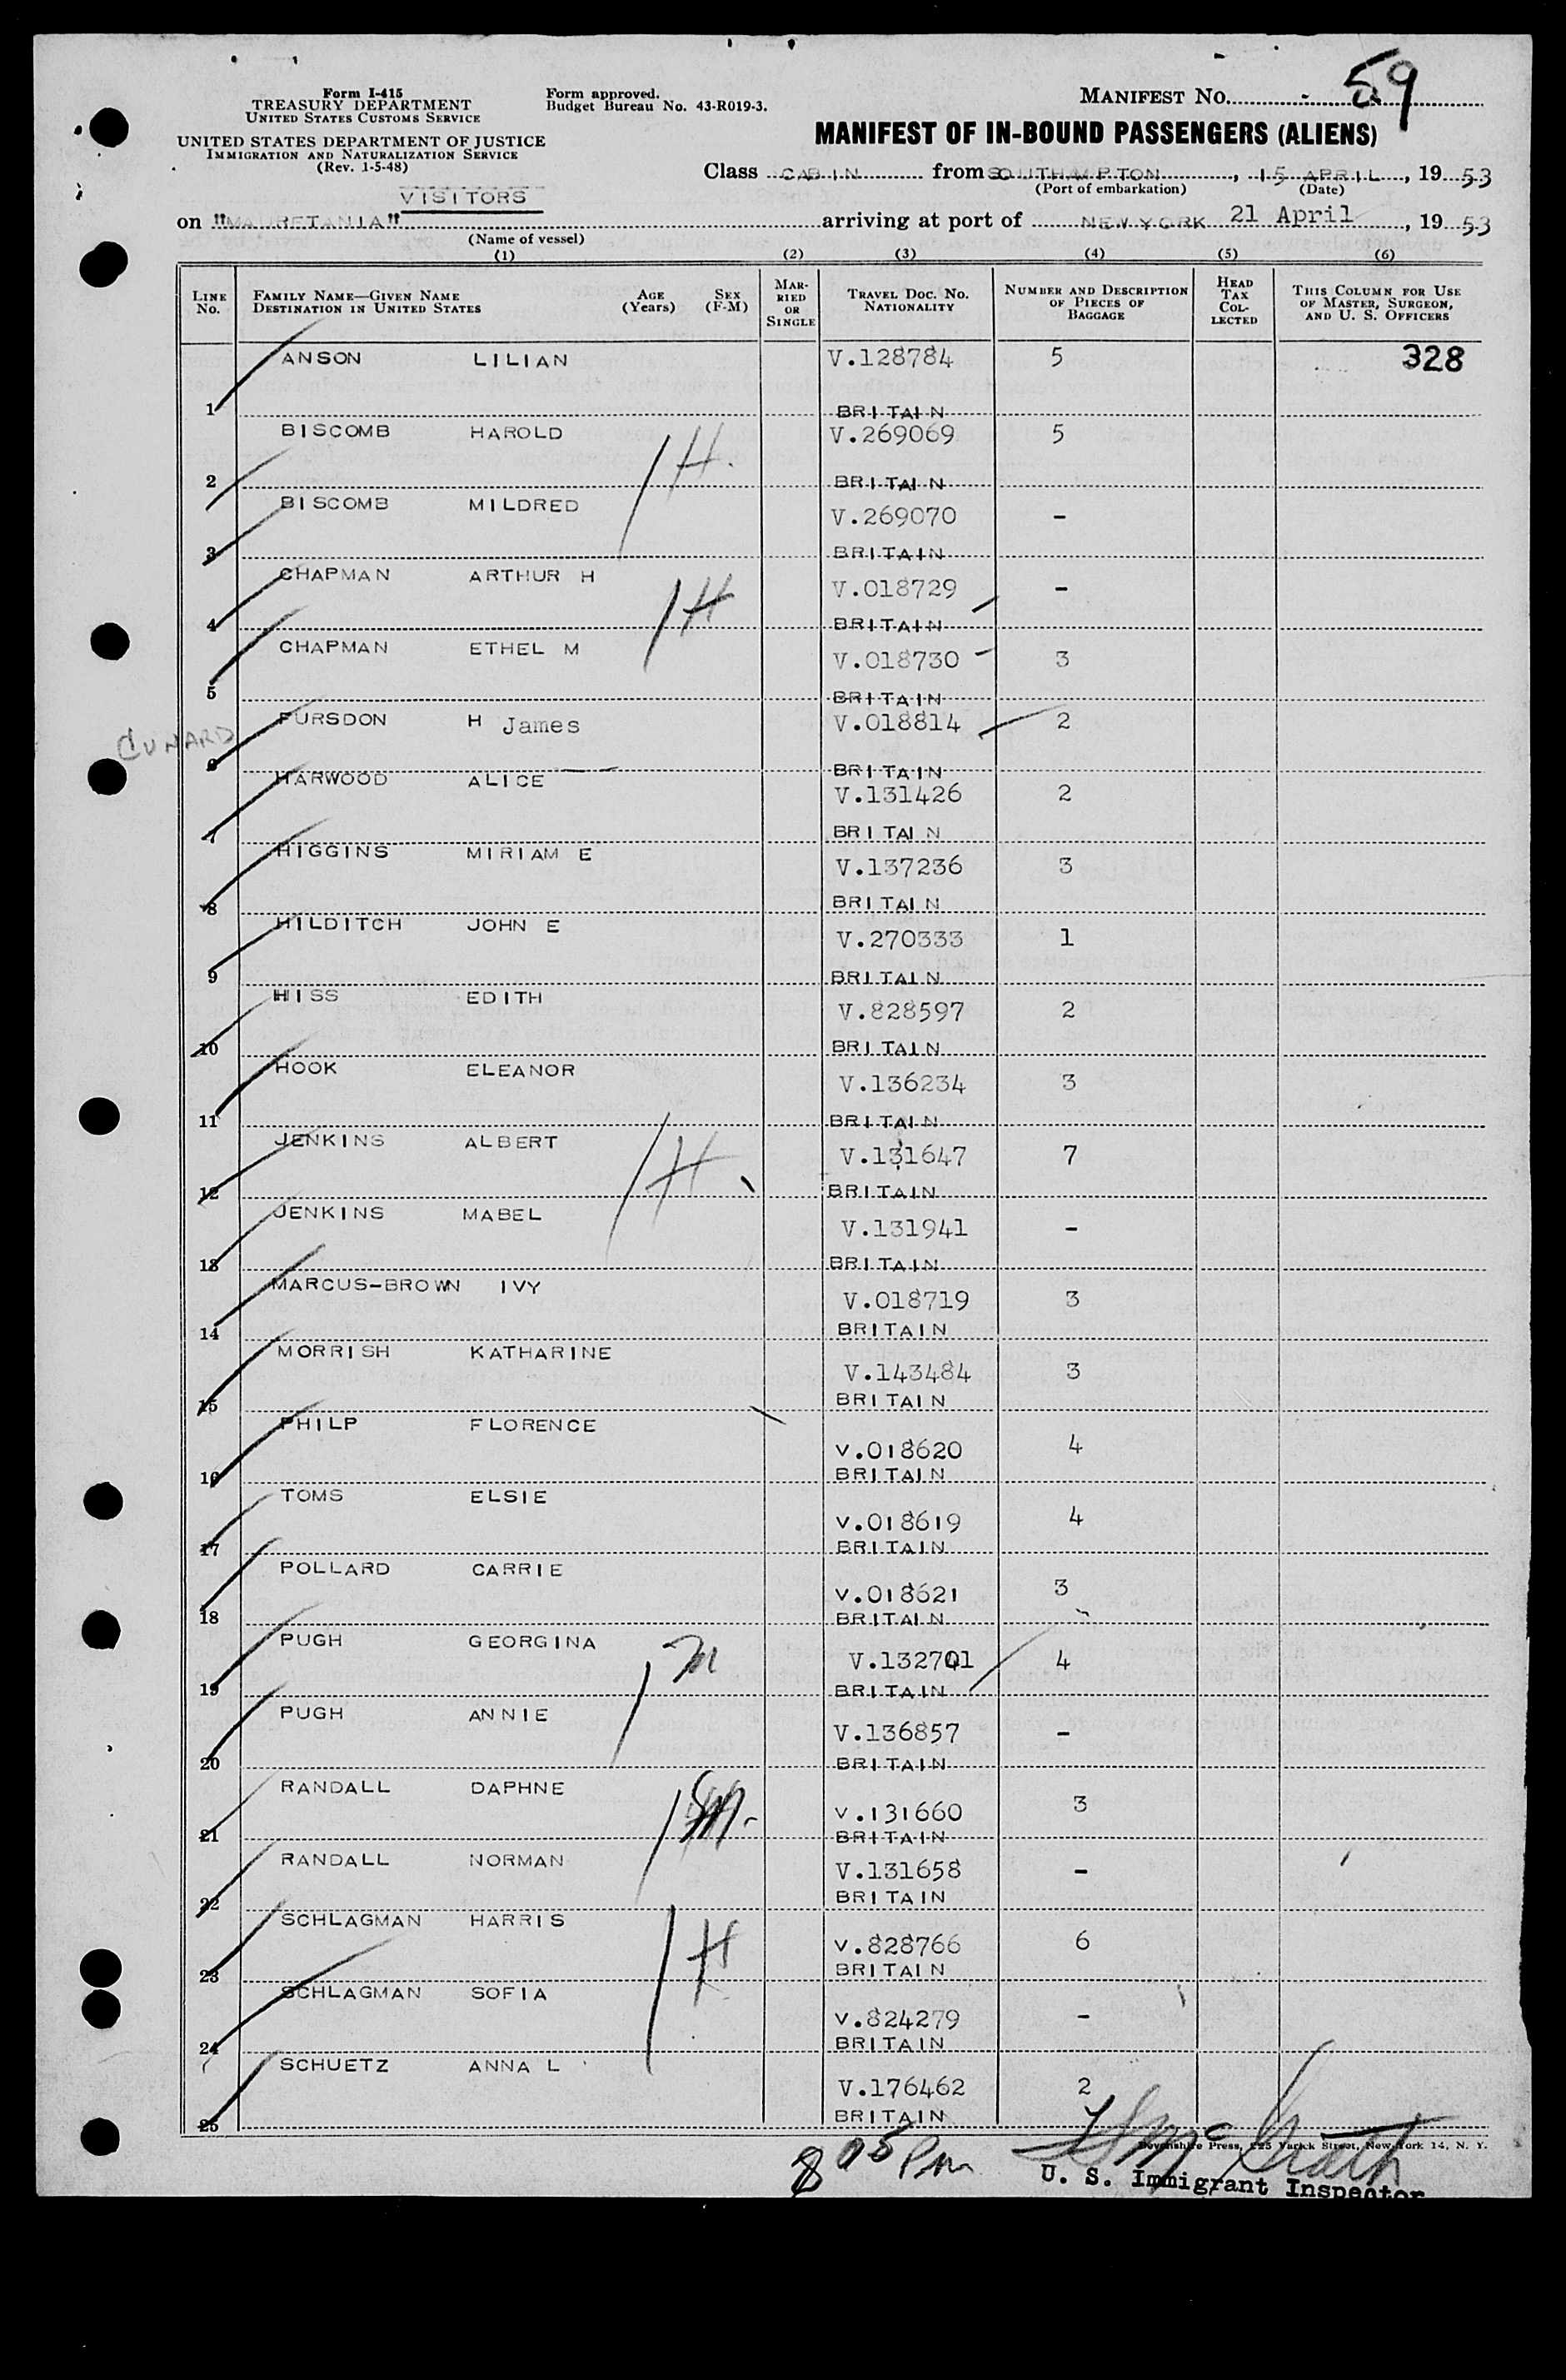 Form I-415
TREASURY DEPARTMENT
UNITED STATES CUSTOMS SERVICE
UNITED STATES DEPARTMENT OF JUSTICE
IMMIGRATION AND NATURALIZATION SERVICE
(Rev. 1-5-48)
Form approved.
Budget Bureau No. 43-R019-3.
MANIFEST No. 59
MANIFEST OF IN-BOUND PASSENGERS (ALIENS)
Class CABIN from SOUTHAMPTON, 15 APRIL, 19 53
(Port of embarkation) (Date)
VISITORS
on "MAURETANIA" arriving at port of NEW YORK 21 April, 19 53
(Name of vessel)
(1) (2) (3) (4) (5) (6)
LINE No. FAMILY NAME—GIVEN NAME DESTINATION IN UNITED STATES AGE (Years) SEX (F-M) MARRIED OR SINGLE TRAVEL DOC. NO. NATIONALITY NUMBER AND DESCRIPTION OF PIECES OF BAGGAGE HEAD TAX COLLECTED THIS COLUMN FOR USE OF MASTER, SURGEON, AND U. S. OFFICERS
ANSON LILIAN V.128784 5 328
1 BRITAIN
BISCOMB HAROLD H. V.269069 5
2 BRITAIN
BISCOMB MILDRED V.269070 -
3 BRITAIN
CHAPMAN ARTHUR H H V.018729 -
4 BRITAIN
CHAPMAN ETHEL M V.018730 3
5 BRITAIN
FURSDON H James V.018814 2
CUNARD
6 BRITAIN
HARWOOD ALICE V.131426 2
7 BRITAIN
HIGGINS MIRIAM E V.137236 3
8 BRITAIN
HILDITCH JOHN E V.270333 1
9 BRITAIN
HISS EDITH V.828597 2
10 BRITAIN
HOOK ELEANOR V.136234 3
11 BRITAIN
JENKINS ALBERT H V.131647 7
12 BRITAIN
JENKINS MABEL V.131941 -
13 BRITAIN
MARCUS-BROWN IVY V.018719 3
14 BRITAIN
MORRISH KATHARINE V.143484 3
15 BRITAIN
PHILP FLORENCE V.018620 4
16 BRITAIN
TOMS ELSIE V.018619 4
17 BRITAIN
POLLARD CARRIE V.018621 3
18 BRITAIN
PUGH GEORGINA M V.132701 4
19 BRITAIN
PUGH ANNIE V.136857 -
20 BRITAIN
RANDALL DAPHNE V.131660 3
21 BRITAIN
RANDALL NORMAN V.131658 -
22 BRITAIN
SCHLAGMAN HARRIS H V.828766 6
23 BRITAIN
SCHLAGMAN SOFIA V.824279 -
24 BRITAIN
SCHUETZ ANNA L V.176462 2
25 BRITAIN
Devonshire Press, 225 Varick Street, New York 14, N. Y.
8 05 PM
McGrath
U. S. Immigrant Inspector